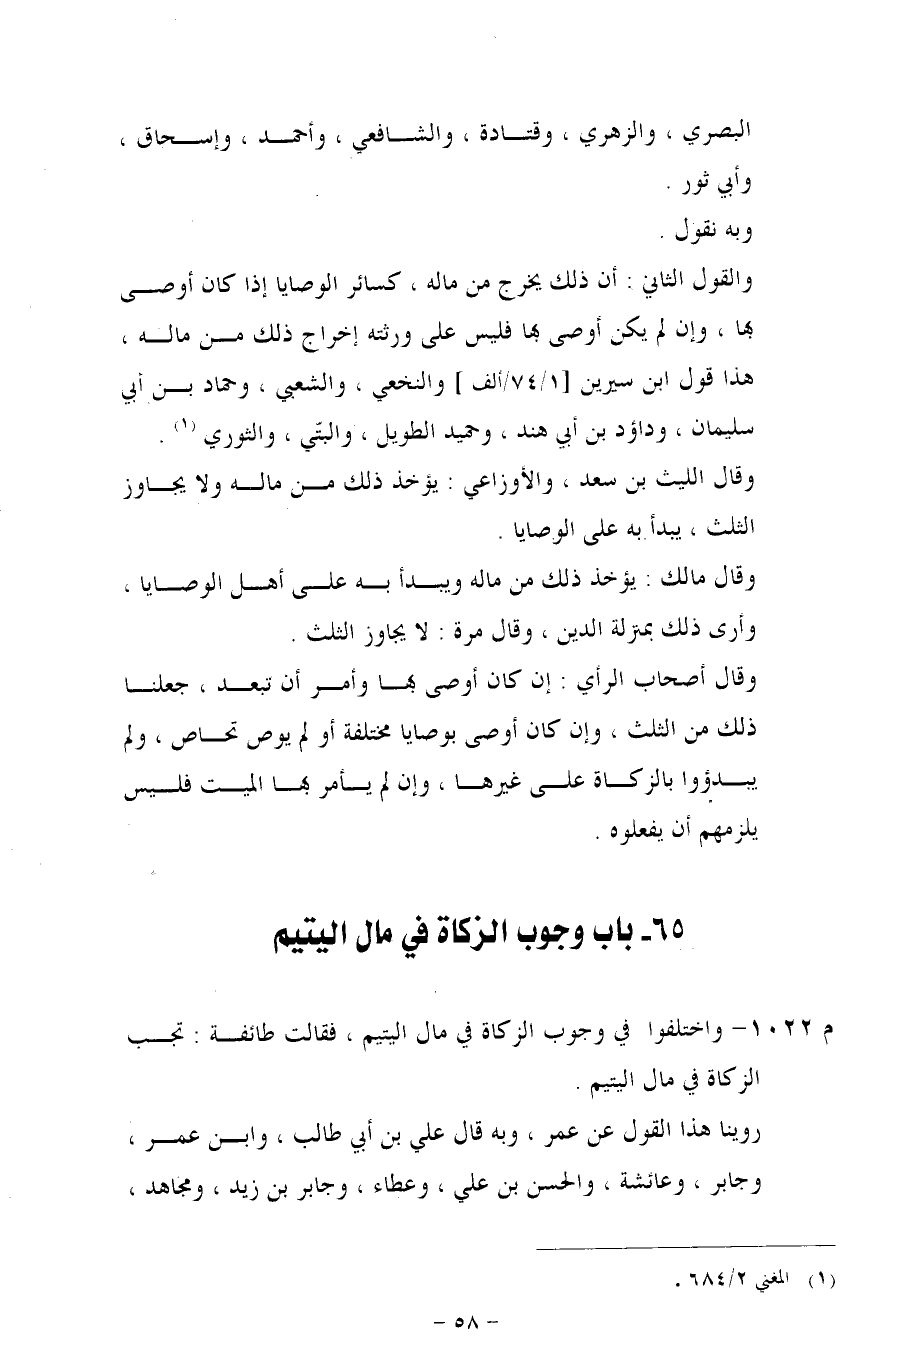 البصري ، والزهري ، وقتادة ، والشافعي ، وأحمد ، وإسحاق ،
وأبي ثور .
وبه نقول .
والقول الثاني : أن ذلك يخرج من ماله ، كسائر الوصايا إذا كان أوصى
بها ، وإن لم يكن أوصى بها فليس على ورثته إخراج ذلك من ماله ،
هذا قول ابن سيرين [٧٤/١/ألف ] والنخعي ، والشعبي ، وحماد بن أبي
سليمان ، وداؤد بن أبي هند ، وحميد الطويل ، والبتّي ، والثوري (١) .
وقال الليث بن سعد ، والأوزاعي : يؤخذ ذلك من ماله ولا يجاوز
الثلث ، يبدأ به على الوصايا .
وقال مالك : يؤخذ ذلك من ماله ويبدأ به على أهل الوصايا ،
وأرى ذلك بمنزلة الدين ، وقال مرة : لا يجاوز الثلث .
وقال أصحاب الرأي : إن كان أوصى بها وأمر أن تبعد ، جعلنا
ذلك من الثلث ، وإن كان أوصى بوصايا مختلفة أو لم يوص تحاص ، ولم
يبدؤوا بالزكاة على غيرها ، وإن لم يأمر بها الميت فليس
يلزمهم أن يفعلوه .
٦٥ـ باب وجوب الزكاة في مال اليتيم
م ١٠٢٢– واختلفوا في وجوب الزكاة في مال اليتيم ، فقالت طائفة : تجب
الزكاة في مال اليتيم .
روينا هذا القول عن عمر ، وبه قال علي بن أبي طالب ، وابن عمر ،
وجابر ، وعائشة ، والحسن بن علي ، وعطاء ، وجابر بن زيد ، ومجاهد ،
(١) المغني ٦٨٤/٢ .
– ٥٨ –